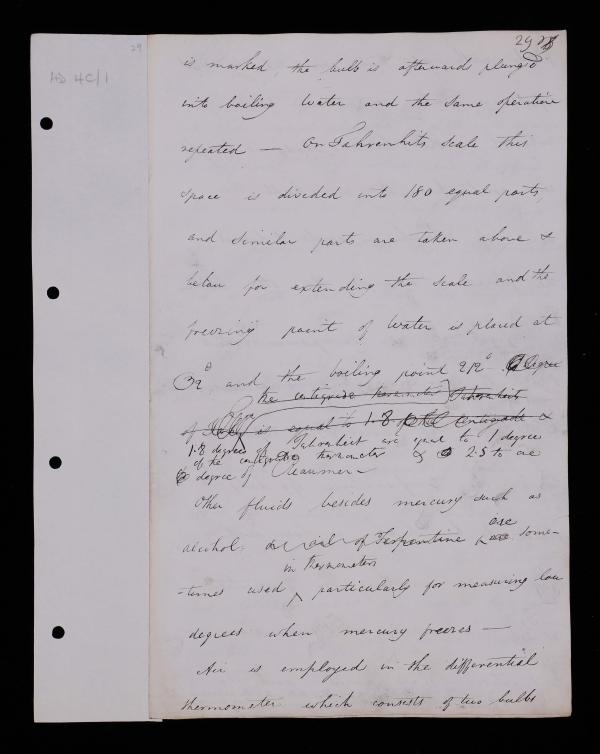 29
HD 4C/1
29
is marked, the bulb is afterwards plunged
into boiling Water and the same operation
repeated — On Fahrenhits scale this
space is divided into 180 equal parts,
and similar parts are taken above &
below for extending the scale and the
freezing point of Water is placed at
32° and the boiling point 212° Degree
the centigrade thermometer Fahrenheits
of is equal to 1.8 centigrade &
1.8 degrees of Fahrenheit are equal to 1 degree
of the centigrade thermometer & 2.5 to one
degree of Reaumer —
Other fluids besides mercury such as
alcohol or oil of Terpentine are some-
in thermometers
-times used ^ particularly for measuring low
degrees when mercury freezes —
Air is employed in the differential
thermometer which consists of two bulbs